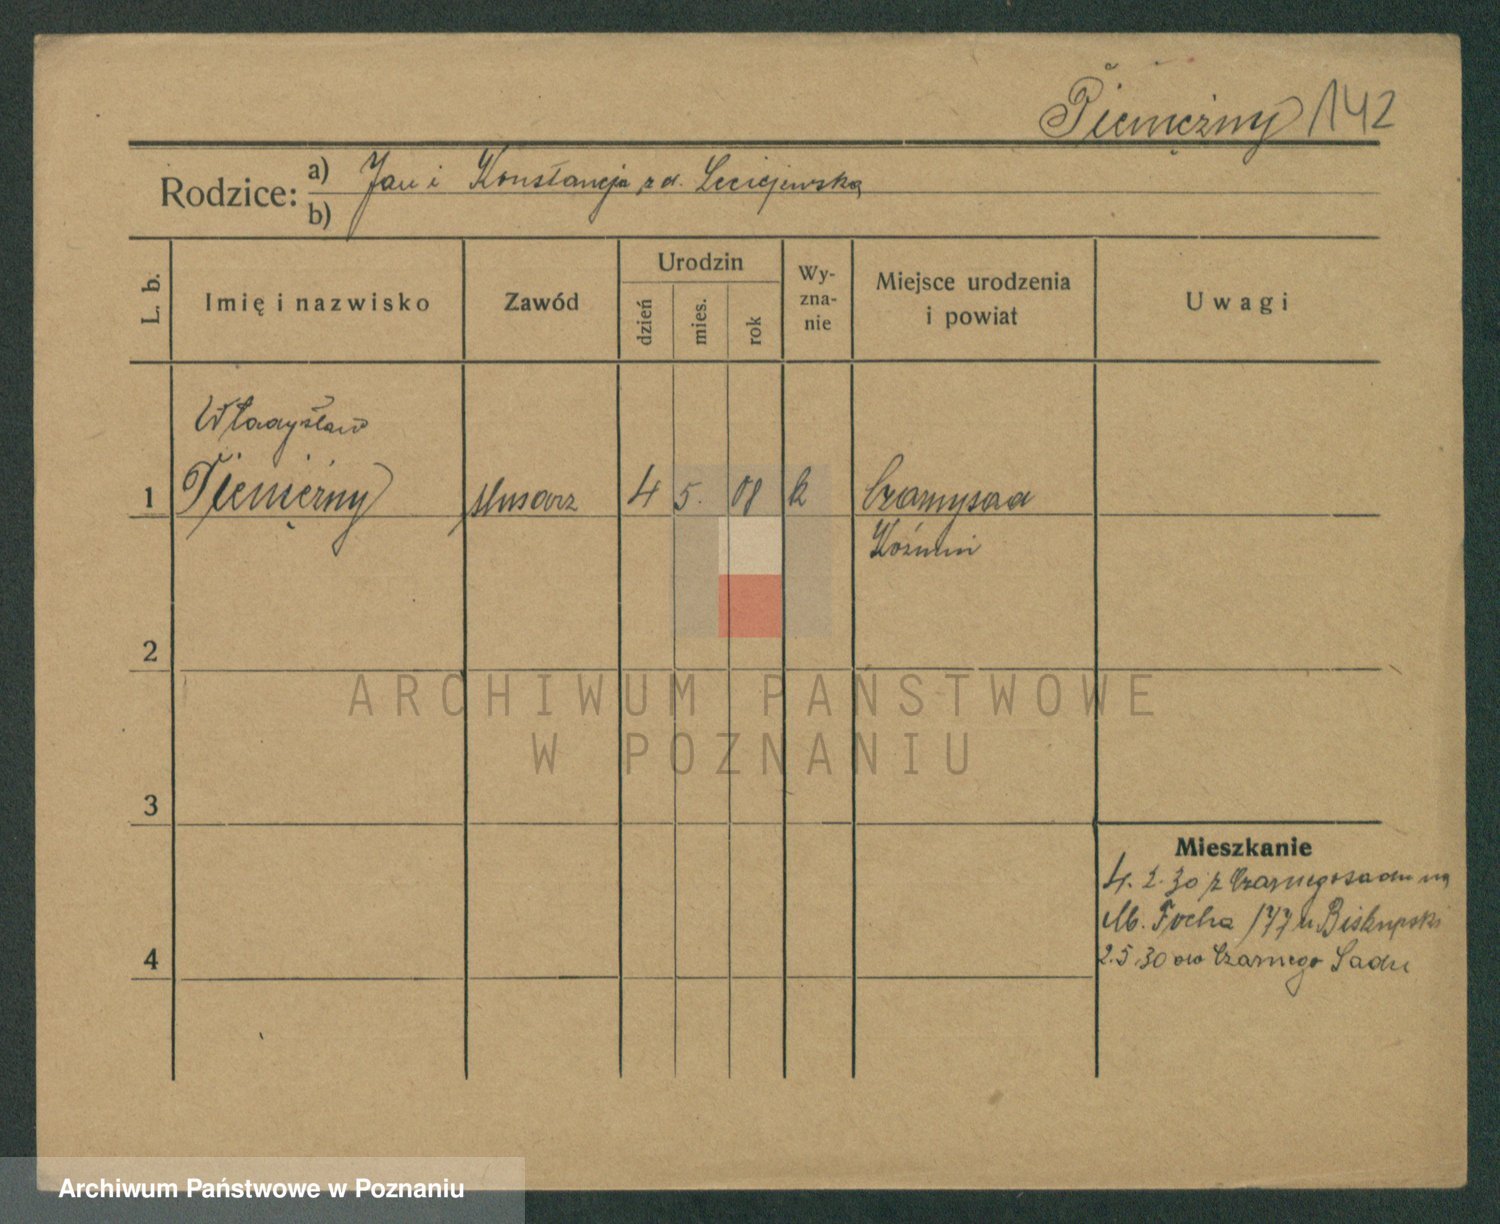 Pieniężny 142
Rodzice: a) Jan i Konstancja z d. Leciejewska
b)
L. b.
Imię i nazwisko
Zawód
Urodzin
dzień
mies.
rok
Wy-
zna-
nie
Miejsce urodzenia
i powiat
Uwagi
Władysław
1 Pieniężny ślusarz 4 5. 08 k Czarnysad
Koźmin
2
ARCHIWUM PAŃSTWOWE
W POZNANIU
3
Mieszkanie
4. 2. 30 z Czarnegosadu na
M. Focha 177 u Biskupski
4
2.5.30 do Czarnego Sadu
Archiwum Państwowe w Poznaniu